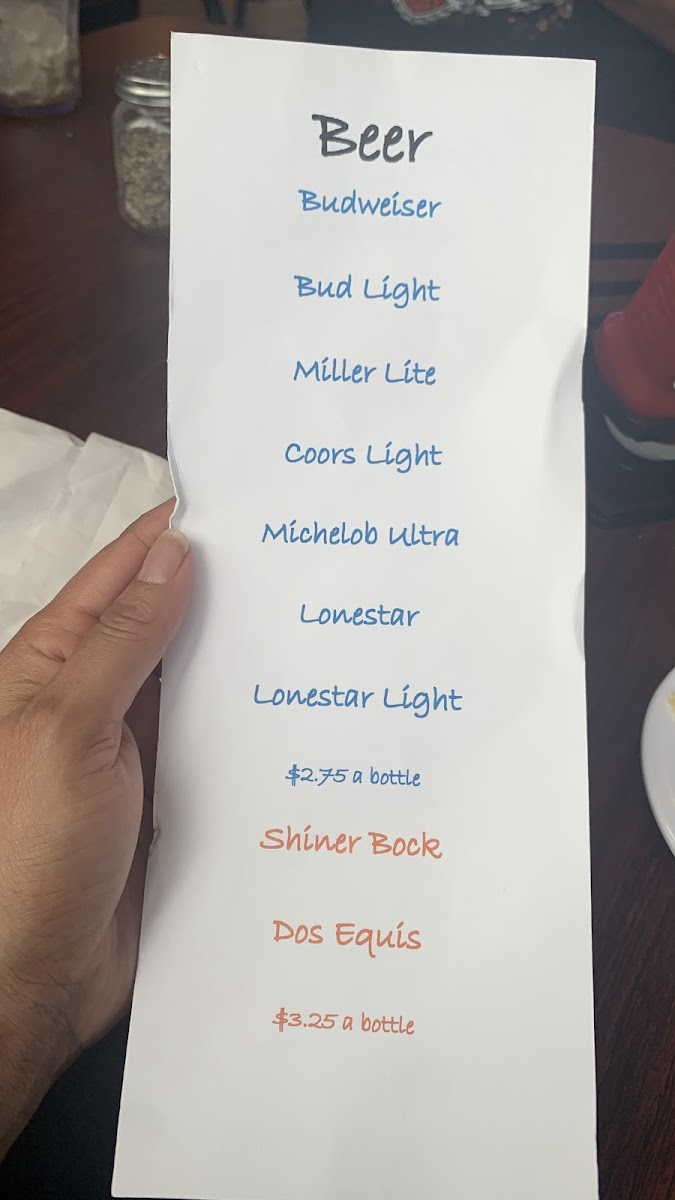 Beer
Budweiser
Bud Light
Miller Lite
Coors Light
Michelob Ultra
Lonestar
Lonestar Light
$2.75 a bottle
Shiner Bock
Dos Equis
$3.25 a bottle